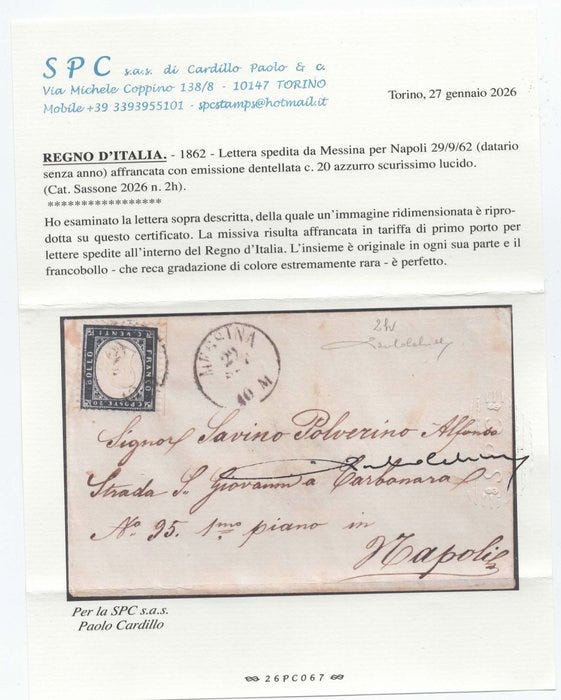 SPC s.a.s. di Cardillo Paolo & c.
Via Michele Coppino 138/8 - 10147 TORINO
Mobile +39 3393955101 - spcstamps@hotmail.it
Torino, 27 gennaio 2026
REGNO D'ITALIA. - 1862 - Lettera spedita da Messina per Napoli 29/9/62 (datario
senza anno) affrancata con emissione dentellata c. 20 azzurro scurissimo lucido.
(Cat. Sassone 2026 n. 2h).
*****************
Ho esaminato la lettera sopra descritta, della quale un'immagine ridimensionata è ripro-
dotta su questo certificato. La missiva risulta affrancata in tariffa di primo porto per
lettere spedite all'interno del Regno d'Italia. L'insieme è originale in ogni sua parte e il
francobollo - che reca gradazione di colore estremamente rara - è perfetto.
C. VENTI
BOLLO
FRANCO
C. POSTE 20
MESSINA
29
10 M
2h
Signor Savino Polverino Alfonso
Strada S. Giovanni a Carbonara
No. 95. 1mo piano in
Napoli
Per la SPC s.a.s.
Paolo Cardillo
26PC067